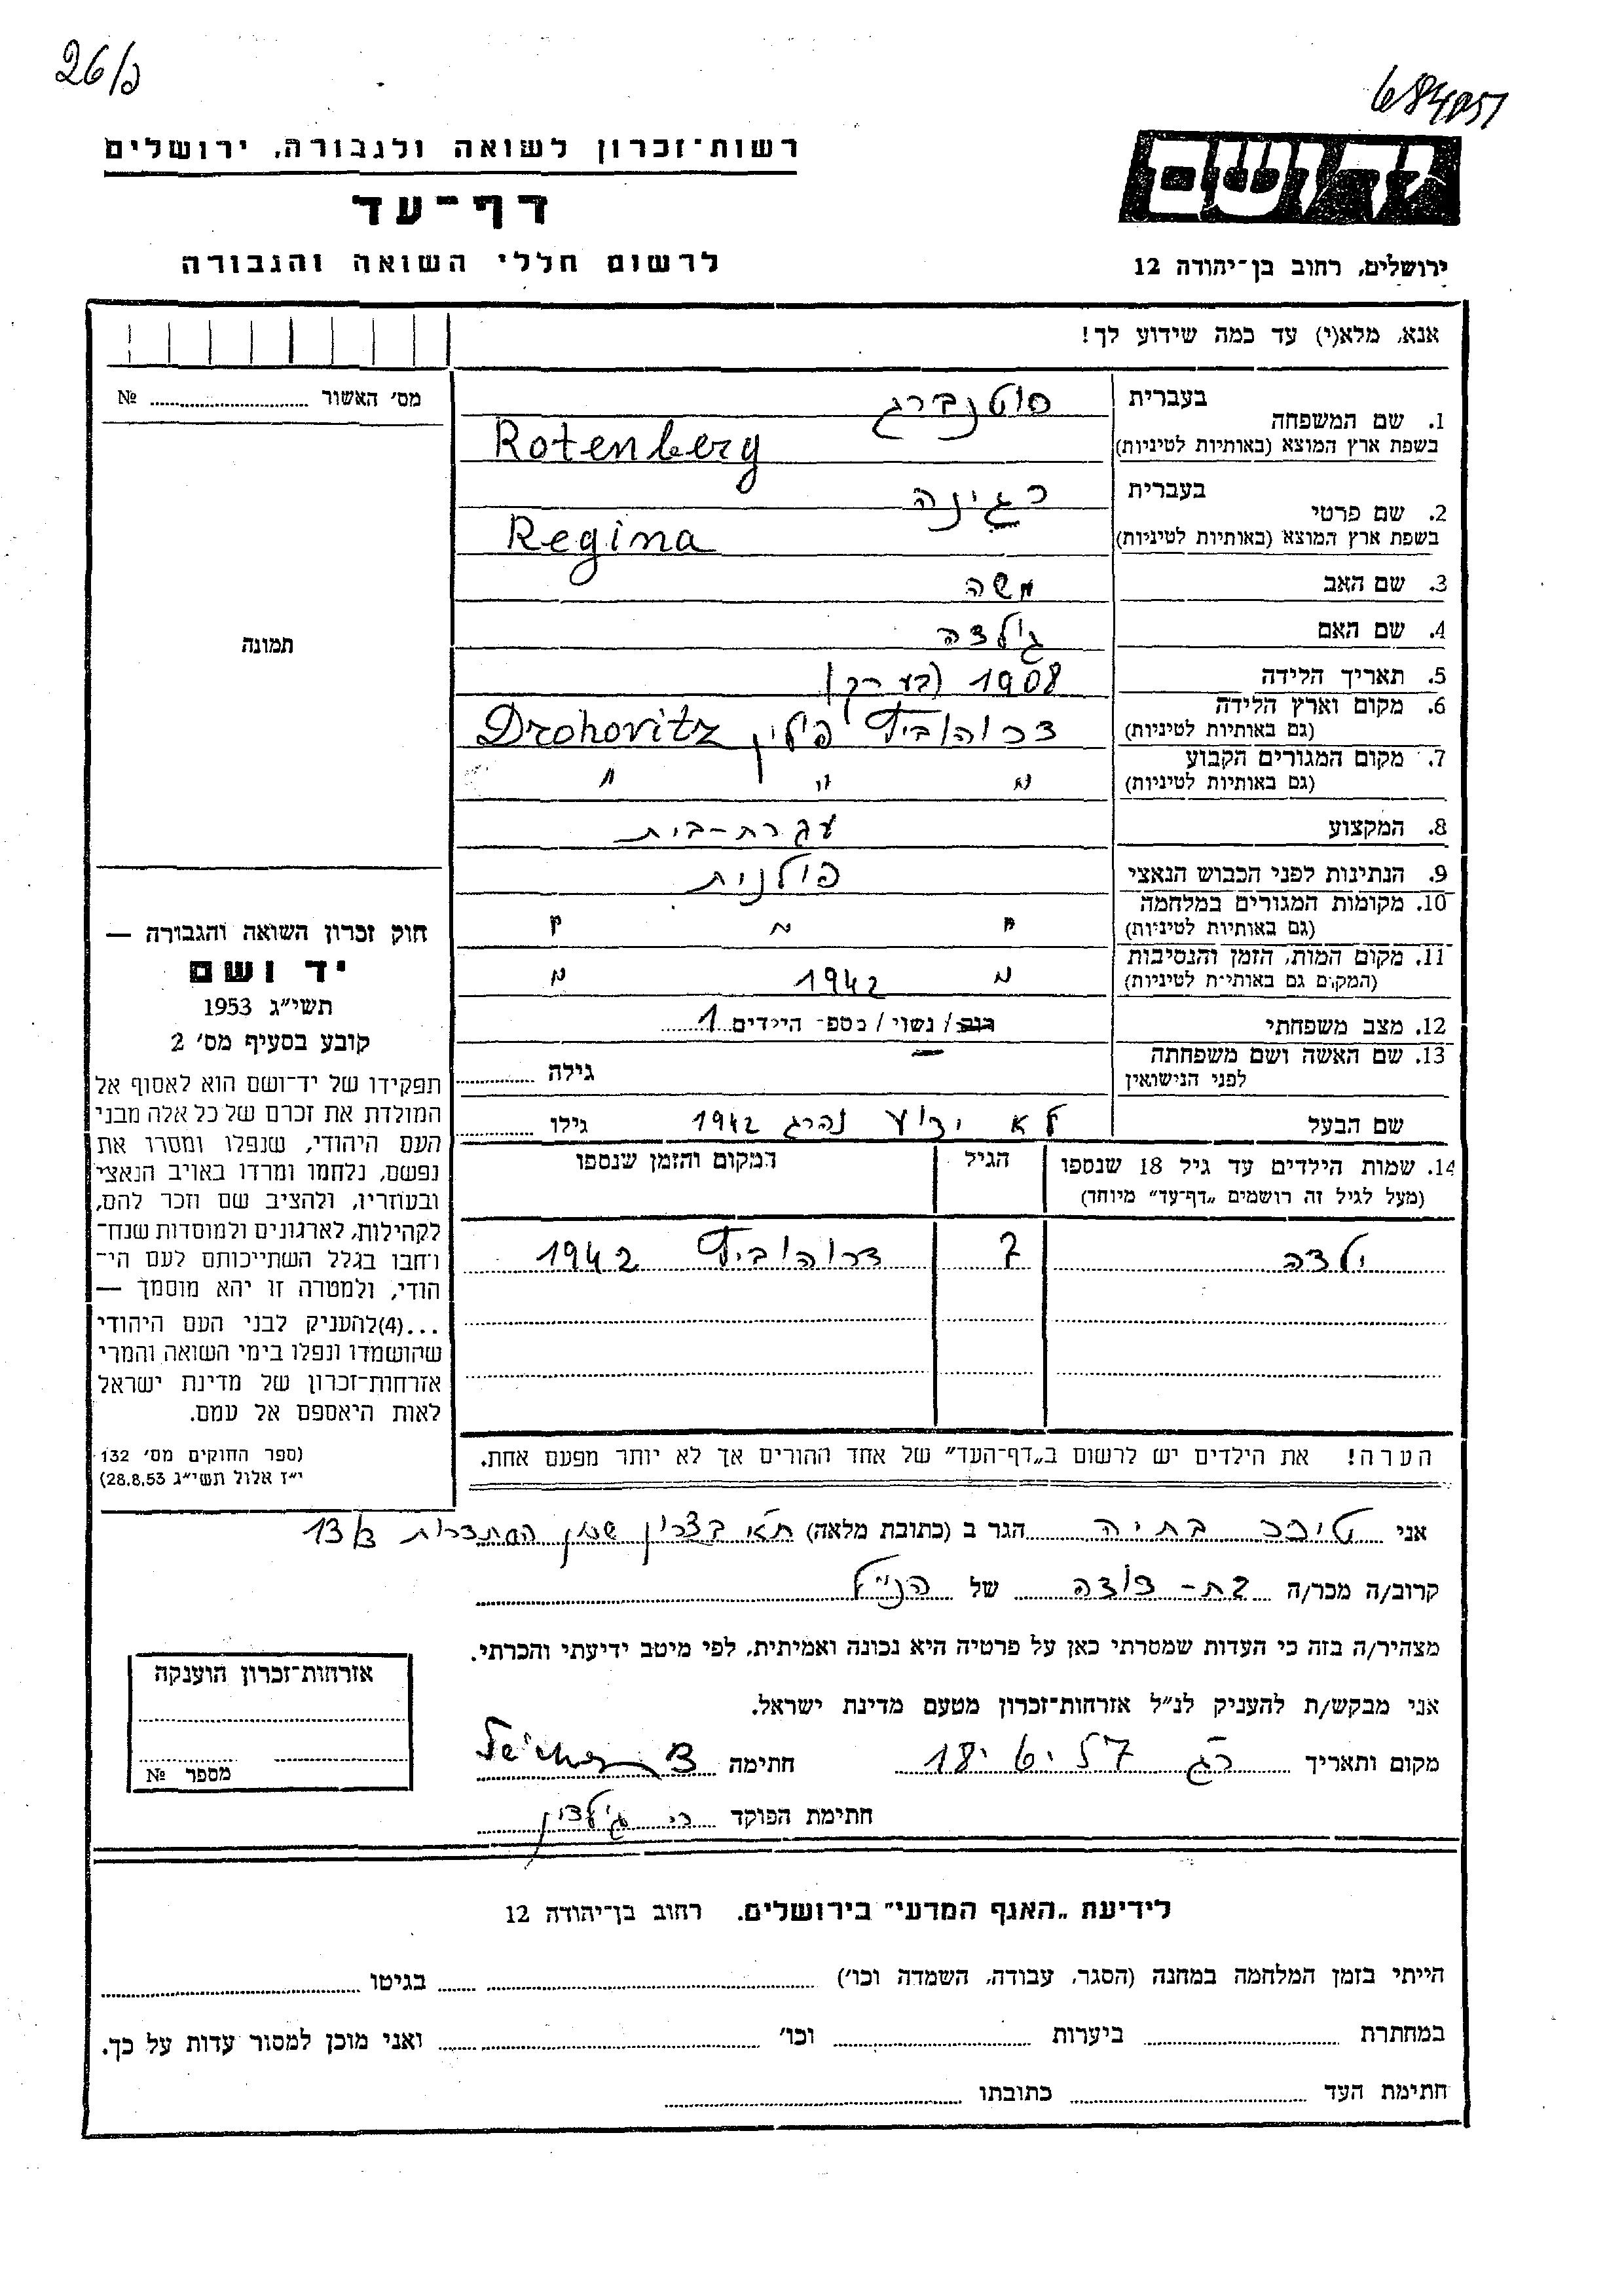 26/כ
684051
רשות־זכרון לשואה ולגבורה, ירושלים
דף־עד
לרשום חללי השואה והגבורה
ידושם
ירושלים, רחוב בן־יהודה 12
אנא, מלא(י) עד כמה שידוע לך!
מס׳ האשור ........ №
תמונה
1. שם המשפחה
בעברית רוטנברג
בשפת ארץ המוצא (באותיות לטיניות) Rotenberg
2. שם פרטי
בעברית רגינה
בשפת ארץ המוצא (באותיות לטיניות) Regina
3. שם האב משה
4. שם האם
5. תאריך הלידה 1908 (בערך)
6. מקום וארץ הלידה
(גם באותיות לטיניות) דרוהוביץ פולין Drohovitz
7. מקום המגורים הקבוע
(גם באותיות לטיניות) " " "
8. המקצוע עקרת-בית
9. הנתינות לפני הכבוש הנאצי פולנית
10. מקומות המגורים במלחמה
(גם באותיות לטיניות) " " "
11. מקום המות, הזמן והנסיבות
(המקום גם באותיות לטיניות) " 1942 "
12. מצב משפחתי רוק/ נשוי/ מספ־ הילדים 1
13. שם האשה ושם משפחתה
לפני הנישואין גילה ........
שם הבעל לא ידוע נהרג 1942 גילו ........
14. שמות הילדים עד גיל 18 שנספו
(מעל לגיל זה רושמים „דף־עד״ מיוחד)
הגיל
המקום והזמן שנספו
ילדה 7 דרוהוביץ 1942
הערה! את הילדים יש לרשום ב„דף־העד״ של אחד ההורים אך לא יותר מפעם אחת.
חוק זכרון השואה והגבורה —
יד ושם
תשי״ג 1953
קובע בסעיף מס׳ 2
תפקידו של יד־ושם הוא לאסוף אל
המולדת את זכרם של כל אלה מבני
העם היהודי, שנפלו ומסרו את
נפשם, נלחמו ומרדו באויב הנאצי
ובעוזריו, ולהציב שם וזכר להם,
לקהילות, לארגונים ולמוסדות שנח־
רחבו בגלל השתייכותם לעם הי־
הודי, ולמטרה זו יהא מוסמך —
...(4)להעניק לבני העם היהודי
שהושמדו ונפלו בימי השואה והמרי
אזרחות־זכרון של מדינת ישראל
לאות היאספם אל עמם.
(ספר החוקים מס׳ 132
י״ז אלול תשי״ג 28.8.53)
אני טיכר בתיה הגר ב (כתובת מלאה) ת״א בצרון שכון הסתדרות 13
קרוב/ה מכר/ה בת-דודה של הנ״ל
מצהיר/ה בזה כי העדות שמסרתי כאן על פרטיה היא נכונה ואמיתית, לפי מיטב ידיעתי והכרתי.
אני מבקש/ת להעניק לנ״ל אזרחות־זכרון מטעם מדינת ישראל.
מקום ותאריך חתימה Teicher B
חתימת הפוקד
אזרחות־זכרון הוענקה
מספר №
לידיעת „האגף המדעי״ בירושלים. רחוב בן־יהודה 12
הייתי בזמן המלחמה במחנה (הסגר, עבודה, השמדה וכו׳) ........ בגיטו ........
במחתרת ........ ביערות ........ וכו׳ ........ ואני מוכן למסור עדות על כך.
חתימת העד ........ כתובתו ........